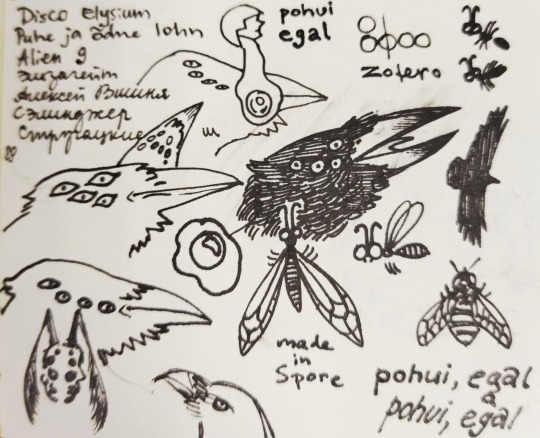 Disco Elysium
Puhe ja õdne lohn
Alien 9
Элизагейт
Алексей Вишня
Сэлинджер
Стругацкие
pohui
egal
zotero
made
in
Spore
pohui, egal
а
pohui, egal